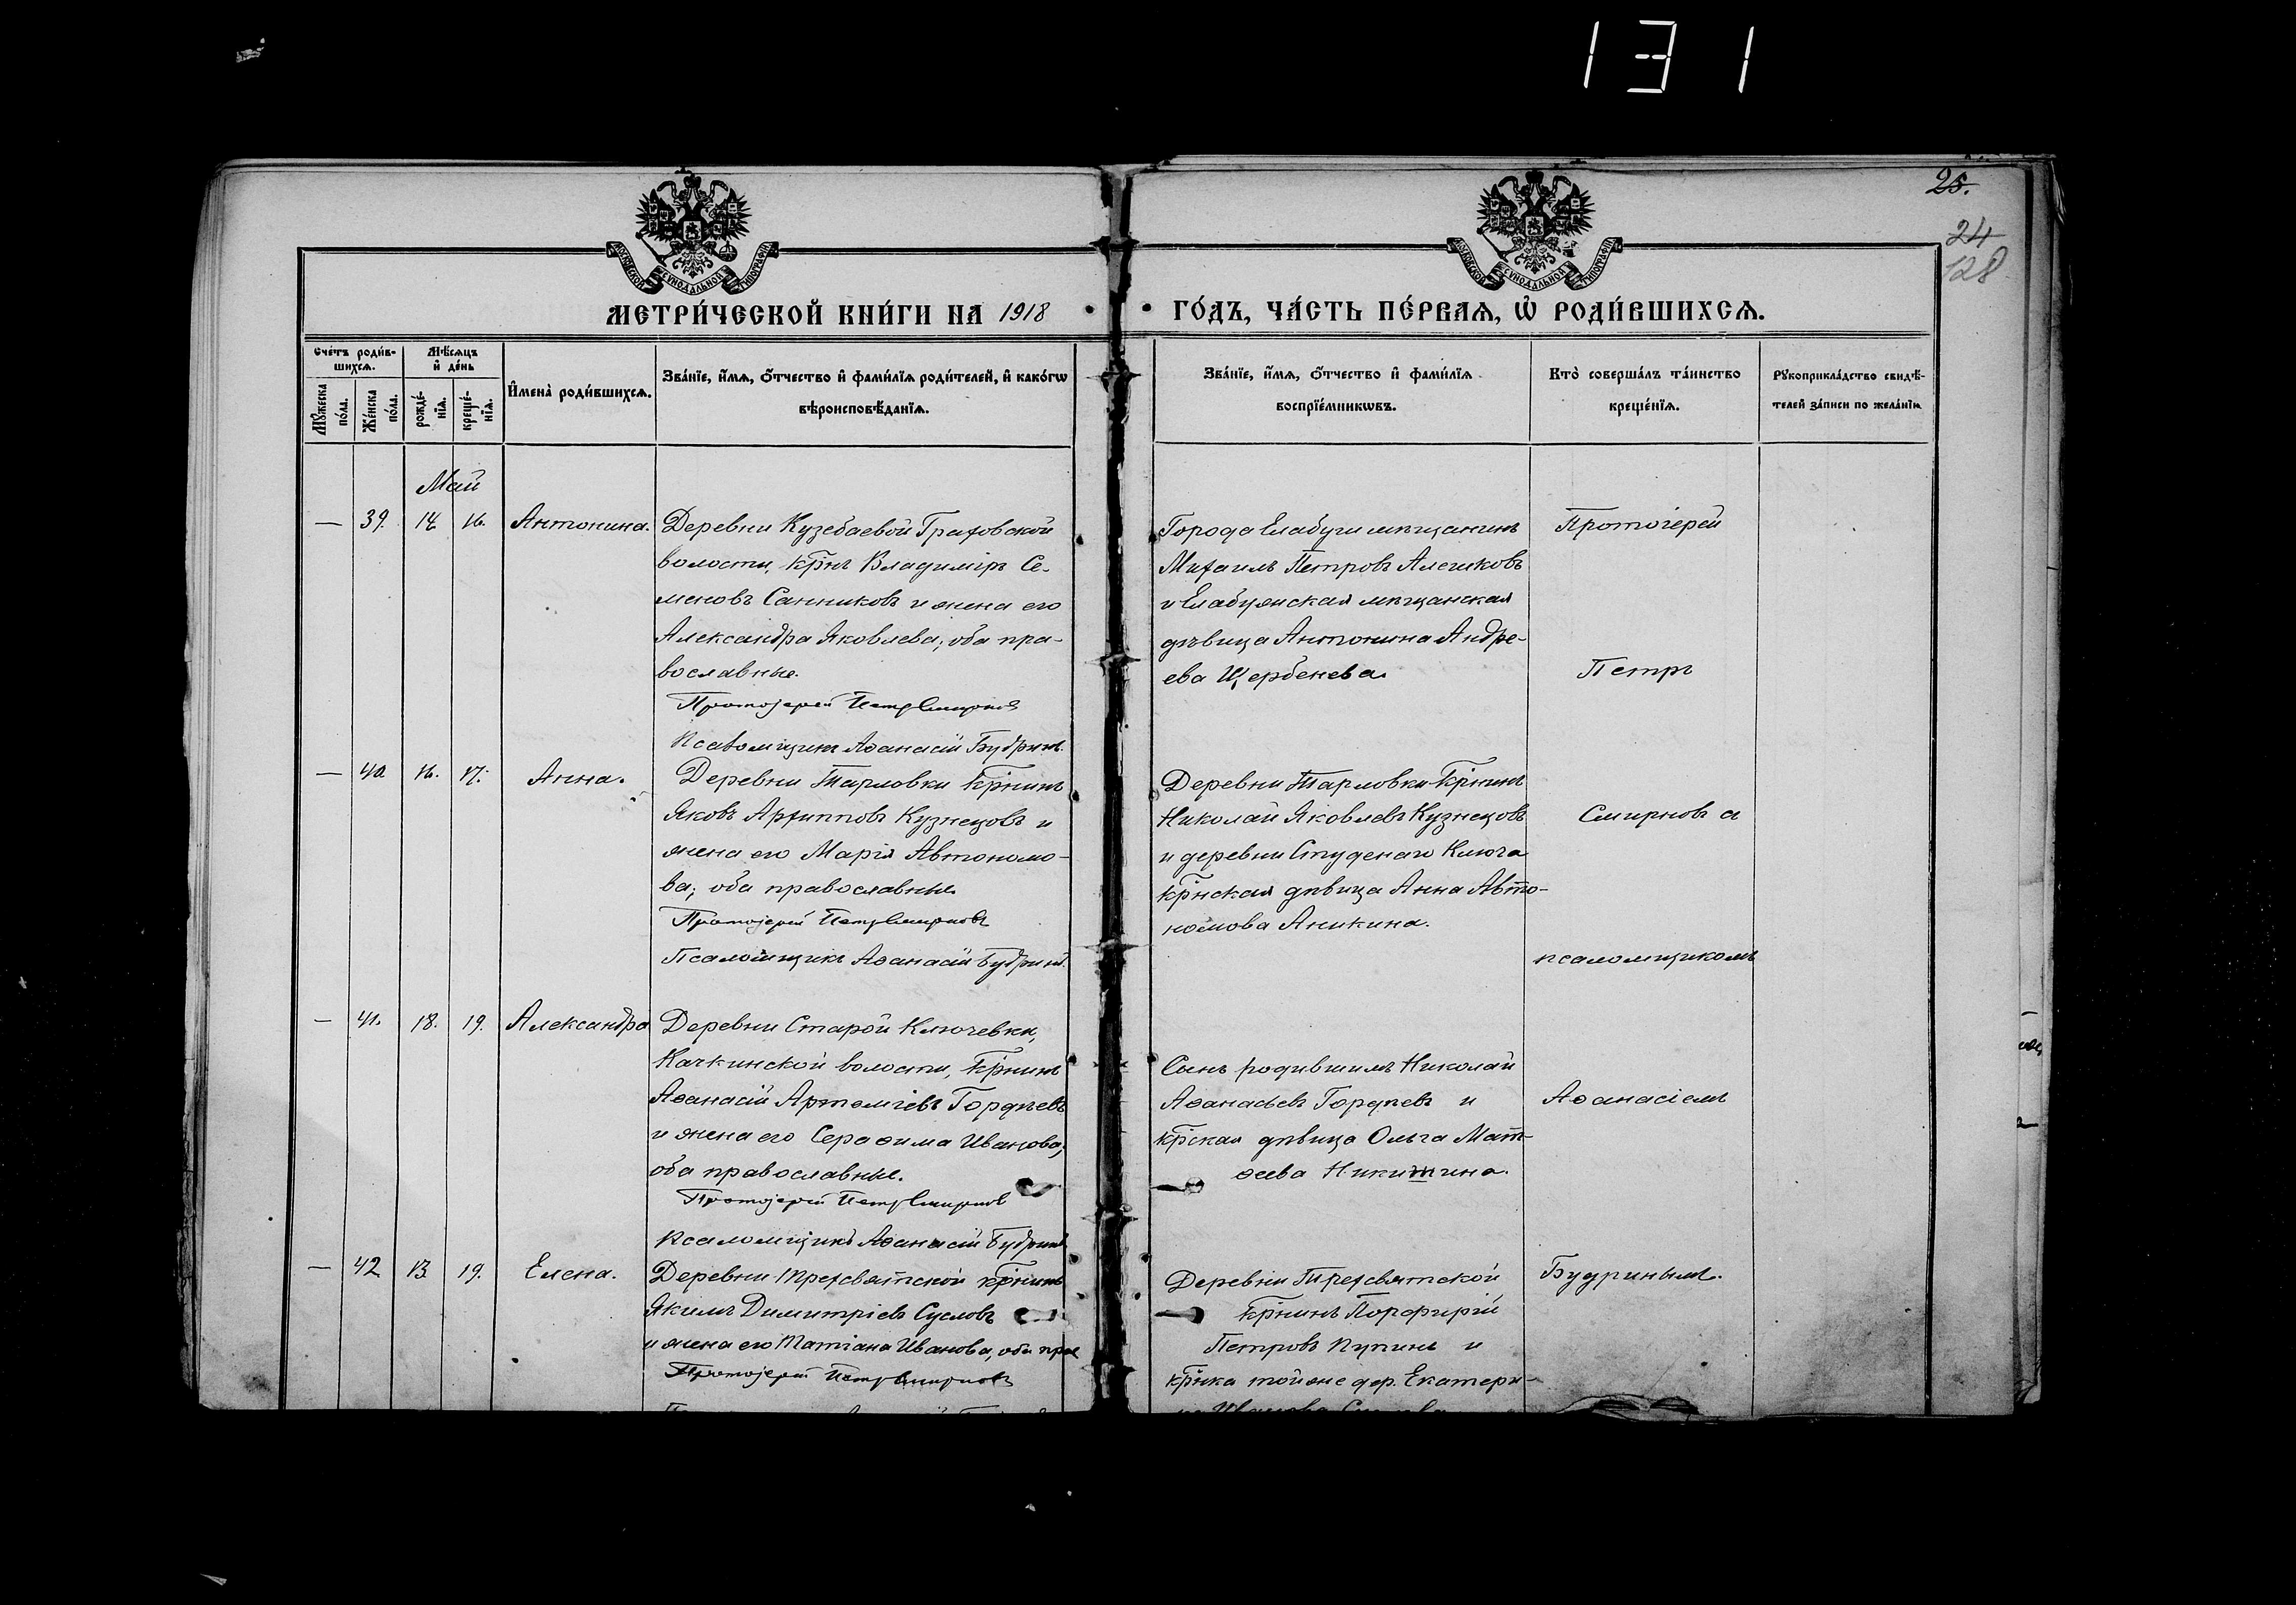 131
25.
24
128
МОСКОВСКОЙ СѴНОДАЛЬНОЙ ТИПОГРАФІИ
МОСКОВСКОЙ СѴНОДАЛЬНОЙ ТИПОГРАФІИ
МЕТРИ́ЧЕСКОЙ КНИ́ГИ НА 1918
ГО́ДЪ, ЧА́СТЬ ПЕ́РВАѦ, Ѽ РОДИ́ВШИХСѦ.
Сче́тъ роди́в-
шихсѧ.
Мꙋ́жеска
по́ла.
Же́нска
по́ла.
Мѣ́сѧцъ
и҆ де́нь
рожде́-
нїѧ.
креще́-
нїѧ.
И҆мена̀ роди́вшихсѧ.
Зва́нїе, и҆́мѧ, ѻ҆́тчество и҆ фами́лїѧ роди́телей, и҆ како́гѡ
вѣроисповѣ́данїѧ.
Зва́нїе, и҆́мѧ, ѻ҆́тчество и҆ фами́лїѧ
воспрїе́мникѡвъ.
Кто̀ соверша́лъ та́инство
креще́нїѧ.
Рꙋкоприкла́дство свидѣ́-
телей за́писи по жела́нїю
Май
— 39. 14 16. Антонина.
Деревни Кузебаевой Граховской
волости, кр̄нъ Владиміръ Се-
меновъ Санниковъ и жена его
Александра Яковлева, оба пра-
вославные.
Протоіерей Петръ Смирновъ
Псаломщикъ Аѳанасій Будринъ.
Города Елабуги мѣщанинъ
Михаилъ Петровъ Алешковъ
и Елабужская мѣщанская
дѣвица Антонина Андре-
ева Щербенева.
Протоіерей
Петръ
— 40 16. 17. Анна.
Деревни Тарловки кр̄нинъ
Яковъ Архипповъ Кузнецовъ и
жена его Марія Автономо-
ва; оба православные
Протоіерей Петръ Смирновъ
Псаломщикъ Аѳанасій Будринъ.
Деревни Тарловки кр̄нинъ
Николай Яковлевъ Кузнецовъ
и деревни Студенаго Ключа
кр̄нская дѣвица Анна Авто-
номова Аникина.
Смирновъ а
псаломщикомъ
— 41. 18. 19. Александра
Деревни Старой Ключевки,
Качкинской волости, кр̄нинъ
Аѳанасій Артеміевъ Гордѣевъ
и жена его Сераѳима Иванова,
оба православные.
Протоіерей Петръ Смирновъ
Псаломщикъ Аѳанасій Будринъ
Сынъ родившимъ Николай
Аѳанасьевъ Гордѣевъ и
кр̄ская дѣвица Ольга Мат-
ѳеева Никитина.
Аѳанасіемъ
— 42 13 19. Елена.
Деревни Трехсвятской кр̄нинъ
Якимъ Димитріевъ Сусловъ
и жена его Татіана Иванова, оба прав
Протоіерей Петръ Смирновъ
Деревни Трехсвятской
кр̄нинъ Порфирій
Петровъ Пупинъ и
кр̄нка той же дер. Екатери-
на Иванова
Будринымъ.